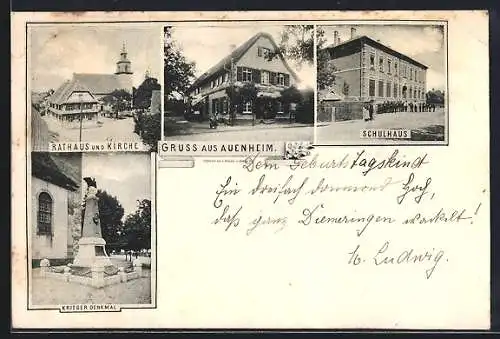 RATHAUS UND KIRCHE
GRUSS AUS AUENHEIM.
SCHULHAUS
Dem Geburtstagskind
Ein dreifach donnernd Hoch,
daß ganz Diemeringen wackelt!
Ludwig.
KRIEGER DENKMAL